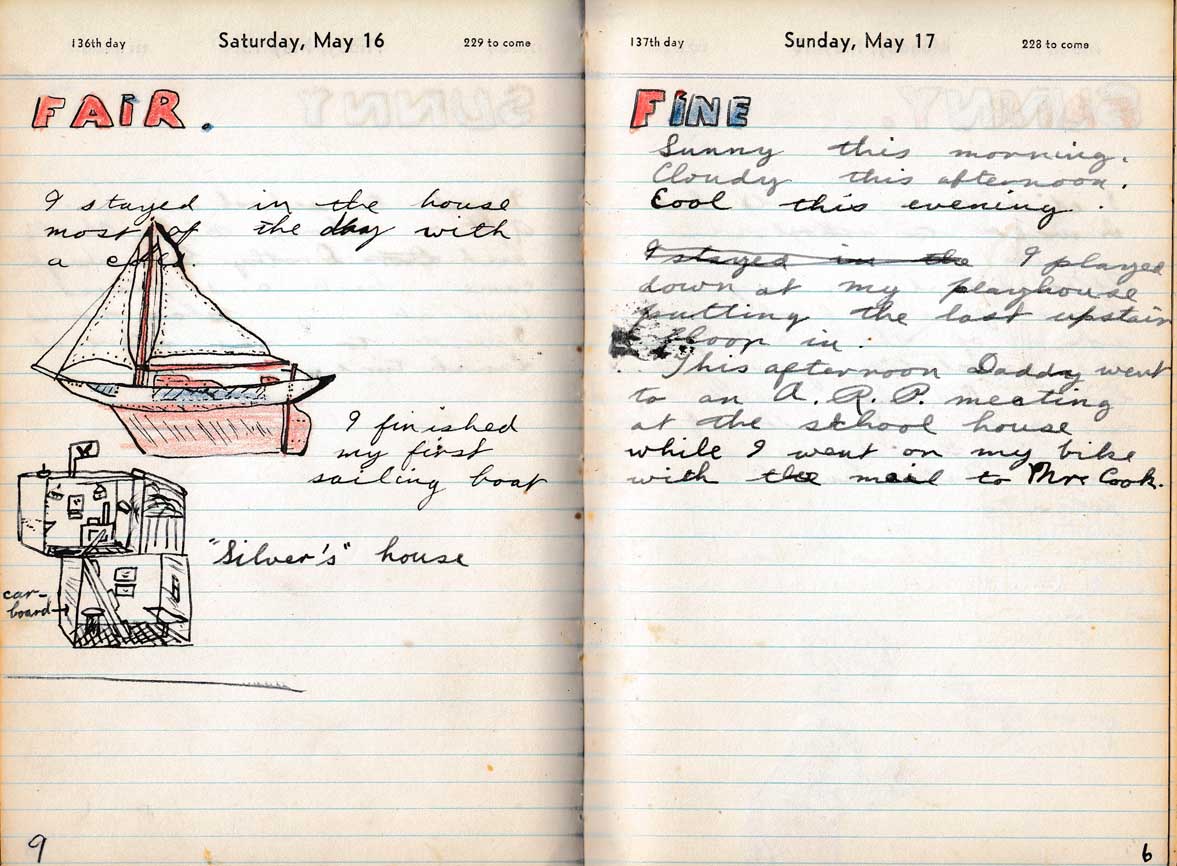 136th day
Saturday, May 16
229 to come
FAIR.
I stayed in the house
most of the day with
a cold.
I finished
my first
sailing boat
"Silver's" house
car-
board
9
137th day
Sunday, May 17
228 to come
FINE
Sunny this morning.
Cloudy this afternoon.
Cool this evening.
I stayed in the I played
down at my playhouse
putting the last upstair
floor in.
This afternoon Daddy went
to an A.R.P. meeting
at the school house
while I went on my bike
with the mail to Mrs Cook.
6